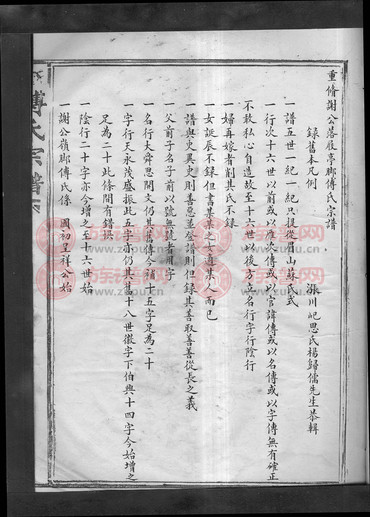 重脩謝公落履亭鄉傅氏宗譜
錄舊本凡例
濠川屺思氏楊歸儒先生恭輯
一譜五世一紀一紀只提從眉山蘇氏式
一行次十六世以前或以序次傳或以官諱傳或以名傳或以字傳無有確正
不敢私心自造故至十六世以後方立名行字行陰行
一婦再嫁者削其氏不錄
一女誕辰不錄但書某某之女適某人而已
一譜與史異史則善惡並登譜則但錄其善取善善從長之義
一父前子名子前父以號無號者用字
一名行大舜思開文仍其舊傳今補十五字足為二十
一字行天永茂盛振此五字亦仍其舊十八世徵字下伯與十四字今始增之
足為二十此條間有錯誤
一陰行二十字亦今增之至十六世始
一謝公嶺鄉傅氏係
國初呈祥公始
傅氏宗譜